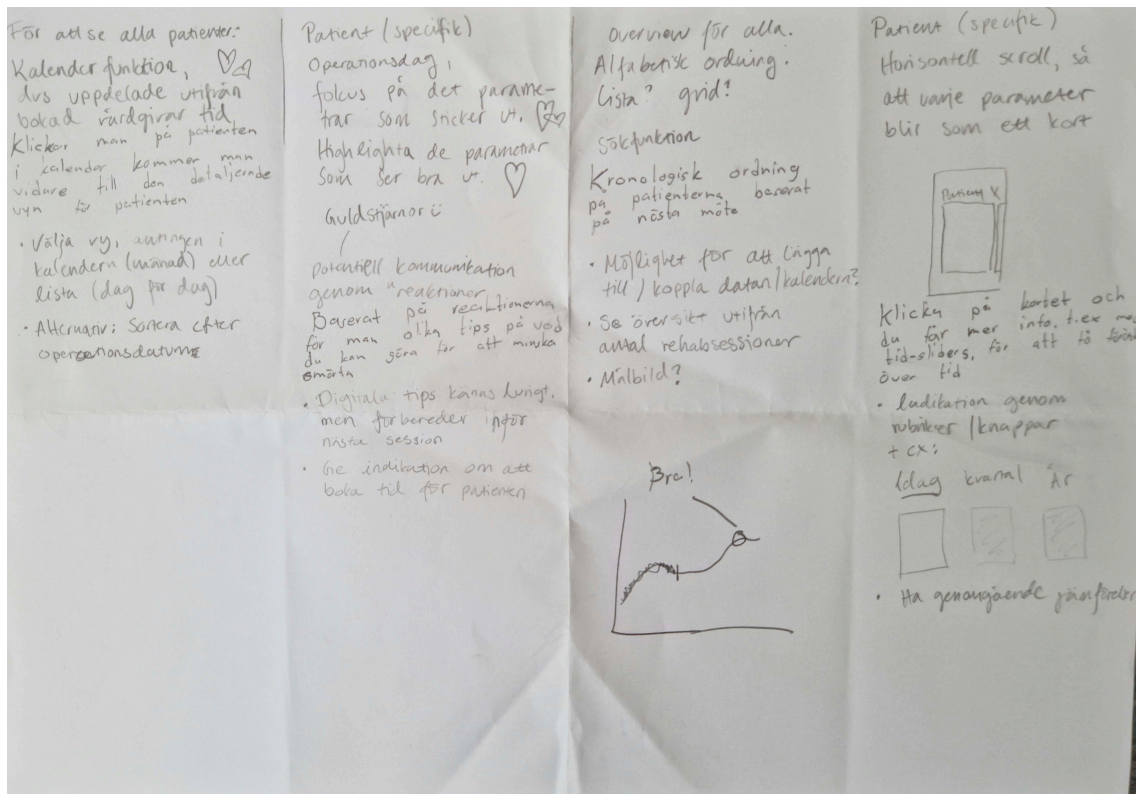 För att se alla patienter:
Kalender funktion,
dvs uppdelade utifrån
bokad vårdgivar tid,
Klickar man på patienten
i kalender kommer man
vidare till den detaljerade
vyn för patienten
• Välja vy, antingen i
kalendern (månad) eller
lista (dag för dag)
• Alternativ: Sortera efter
operationsdatum
Patient (specifik)
Operationsdag,
fokus på det parame-
trar som sticker ut.
Highlighta de parametrar
som ser bra ut.
Guldstjärnor
Potentiell kommunikation
genom "reaktioner
Baserat på reaktionerna
får man olika tips på vad
du kan göra för att minska
smärta
• Digitala tips känns lurigt,
men förbereder inför
nästa session
• Ge indikation om att
boka tid för patienten
Overview för alla.
Alfabetisk ordning:
Lista? grid?
Sökfunktion
Kronologisk ordning
på patienterna baserat
på nästa möte
• Möjlighet för att lägga
till / koppla datan/kalendern?
• Se översikt utifrån
antal rehabsessioner
• Målbild?
Bra!
Patient (specifik)
Horisontell scroll, så
att varje parameter
blir som ett kort
Patient X
Klicka på kortet och
du får mer info, t.ex
tid-sliders, för att få
över tid
• Indikation genom
rubriker / knappar
+ ex:
Idag kvartal År
• Ha genomgående